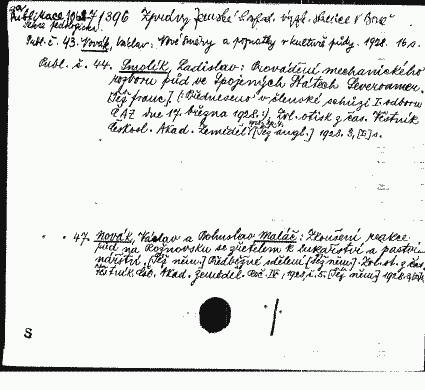 Publikace 1396 Zprávy Zemské výzk. stanice v Brně
Série pedologická.
Publ. č. 43. Novák, Václav: Nové směry a poznatky v kultuře půdy. 1928. 16 s.
Publ. č. 44. Smolík, Ladislav: Provádění mechanického
rozboru půd ve Spojených Státech Severoamer.
[Též franc.] (:Předneseno v členské schůzi I. odboru
ČAZ dne 17. března 1928.:) Zvl. otisk z čas. Věstník
českosl. Akad. Zeměděl. [Též angl.] 1928. 8, s.
47. Novák, Václav a Bohuslav Malář: Zkoušení reakce
půd na Rožnovsku se zřetelem k lukařství a pastvi-
nářství. [Též něm.] Předběžné sdělení [Též něm.]. Zvl. ot. z čas.
Věstník čsl. Akad. zeměděl. Roč. IV, 1928, č. 5. [Též něm.] 1928.
S